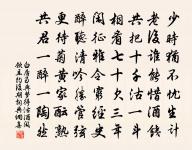 少時猶不憂生計
老後誰能惜酒錢
共把十千沽一斗
相看七十欠三年
閑征雅令窮經史
醉聽清吟勝管弦
更待菊黃家醞熟
共君一醉一陶然
白居易與夢得沽酒閑
飲且約後期詞典網集